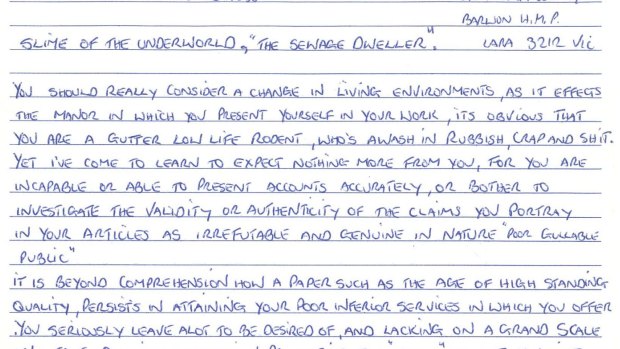 BARWON H.M.P.
SLIME OF THE UNDERWORLD, "THE SEWAGE DWELLER". LARA 3212 VIC
YOU SHOULD REALLY CONSIDER A CHANGE IN LIVING ENVIRONMENTS, AS IT EFFECTS
THE MANOR IN WHICH YOU PRESENT YOURSELF IN YOUR WORK, ITS OBVIOUS THAT
YOU ARE A GUTTER LOW LIFE RODENT, WHO'S AWASH IN RUBBISH, CRAP AND SHIT.
YET I'VE COME TO LEARN TO EXPECT NOTHING MORE FROM YOU, FOR YOU ARE
INCAPABLE OR ABLE TO PRESENT ACCOUNTS ACCURATELY, OR BOTHER TO
INVESTIGATE THE VALIDITY OR AUTHENTICITY OF THE CLAIMS YOU PORTRAY
IN YOUR ARTICLES AS IRREFUTABLE AND GENUINE IN NATURE "POOR GULLABLE
PUBLIC"
IT IS BEYOND COMPREHENSION HOW A PAPER SUCH AS THE AGE OF HIGH STANDING
QUALITY, PERSISTS IN ATTAINING YOUR POOR INFERIOR SERVICES IN WHICH YOU OFFER
.YOU SERIOUSLY LEAVE ALOT TO BE DESIRED OF, AND LACKING ON A GRAND SCALE